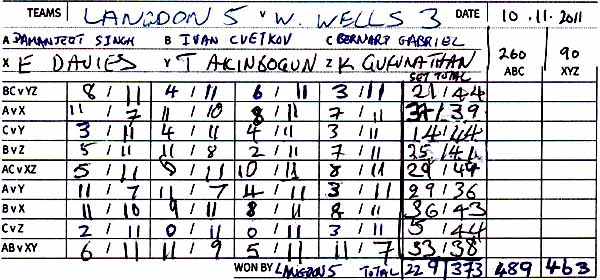 TEAMS LANGDON 5 v W. WELLS 3 DATE 10.11.2011
A DAMANJEET SINGH B IVAN CVETKOV C BERNART GABRIEL 260 90
X E DAVIES Y T AKINBOGUN Z K GURUNATHAN ABC XYZ
SET TOTAL
BCvYZ 8/11 4/11 6/11 3/11 21/44
AvX 11/7 11/10 8/11 7/11 37/39
CvY 3/11 4/11 4/11 3/11 14/44
BvZ 5/11 11/8 2/11 7/11 25/41
ACvXZ 5/11 /11 10/11 8/11 /44
AvY 11/7 11/7 4/11 3/11 29/36
BvX 11/10 9/11 8/11 8/11 36/43
CvZ 2/11 0/11 0/11 3/11 5/44
ABvXY 6/11 11/9 5/11 11/7 33/38
WON BY LANGDON 5 TOTAL 229 373 489 463